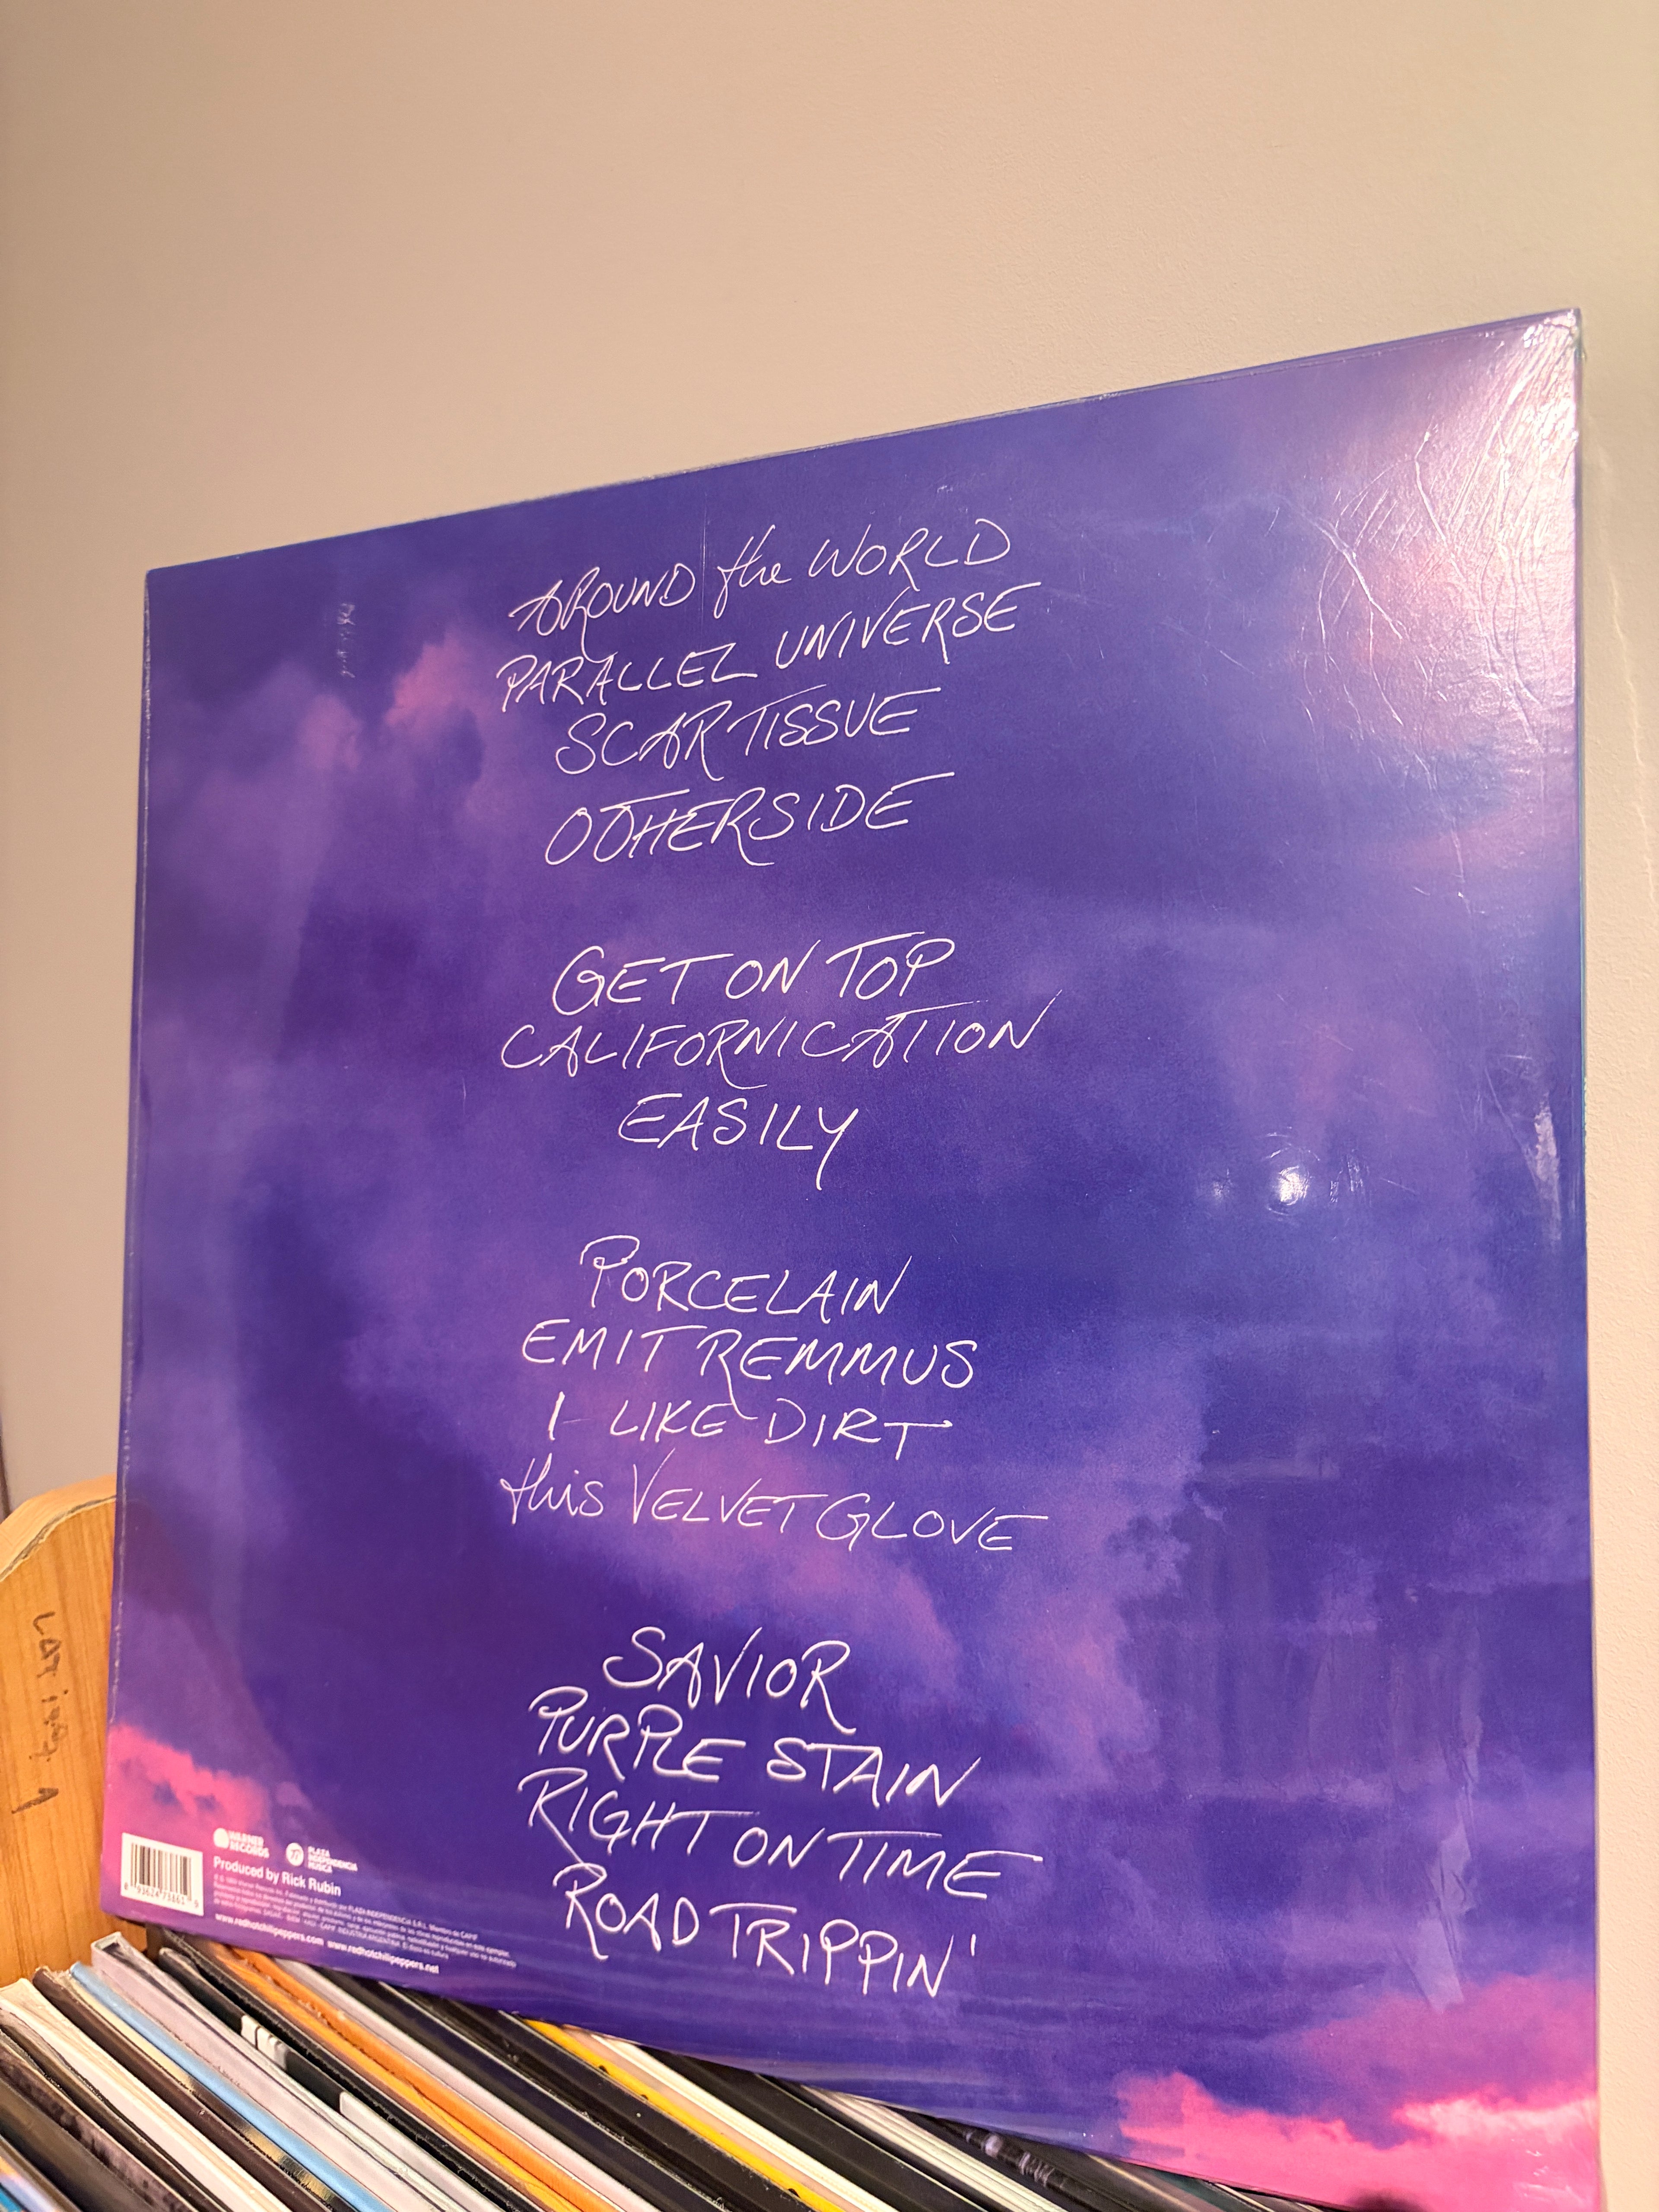 AROUND the WORLD
PARALLEL UNIVERSE
SCAR TISSUE
OTHERSIDE
GET ON TOP
CALIFORNICATION
EASILY
PORCELAIN
EMIT REMMUS
I LIKE DIRT
this VELVET GLOVE
SAVIOR
PURPLE STAIN
RIGHT ON TIME
ROAD TRIPPIN'
WARNER
RECORDS
PLAZA
INDEPENDENCIA
MÚSICA
Produced by Rick Rubin
www.redhotchilipeppers.com www.redhotchilipeppers.net